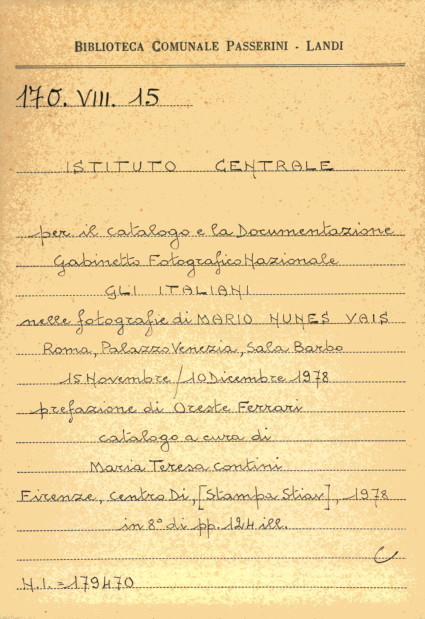 BIBLIOTECA COMUNALE PASSERINI - LANDI
170. VIII. 15
ISTITUTO CENTRALE
per il catalogo e la Documentazione
Gabinetto Fotografico Nazionale
GLI ITALIANI
nelle fotografie di MARIO NUNES VAIS
Roma, Palazzo Venezia, Sala Barbo
15 Novembre / 10 Dicembre 1978
prefazione di Oreste Ferrari
catalogo a cura di
Maria Teresa Contini
Firenze, Centro Di, [Stampa Stiav], 1978
in 8° di pp. 124 ill.
N.I. = 179470